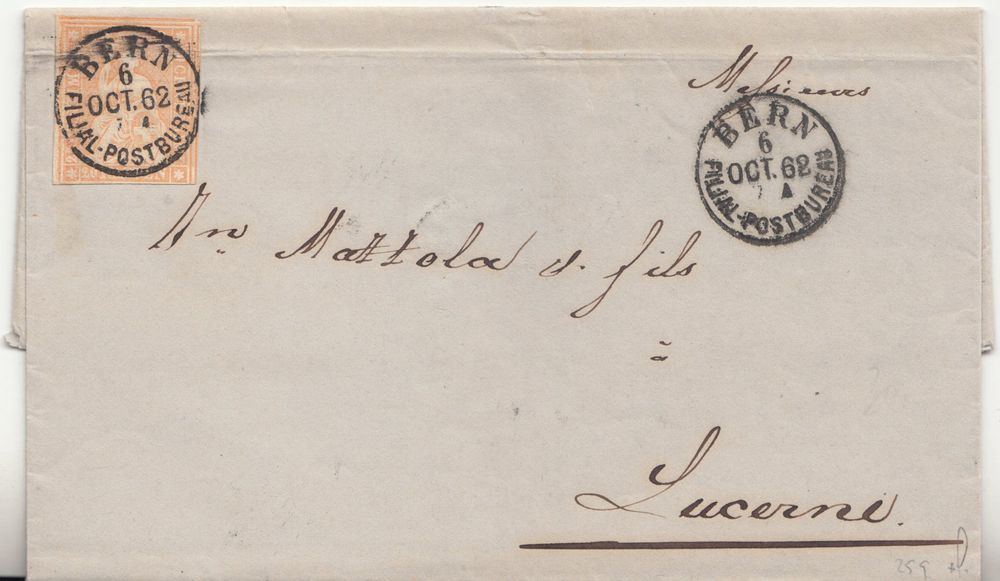 BERN
6
OCT. 62
7 A
FILIAL-POSTBUREAU
Messieurs
BERN
6
OCT. 62
7 A
FILIAL-POSTBUREAU
An Mattola & fils
à
Lucerne.